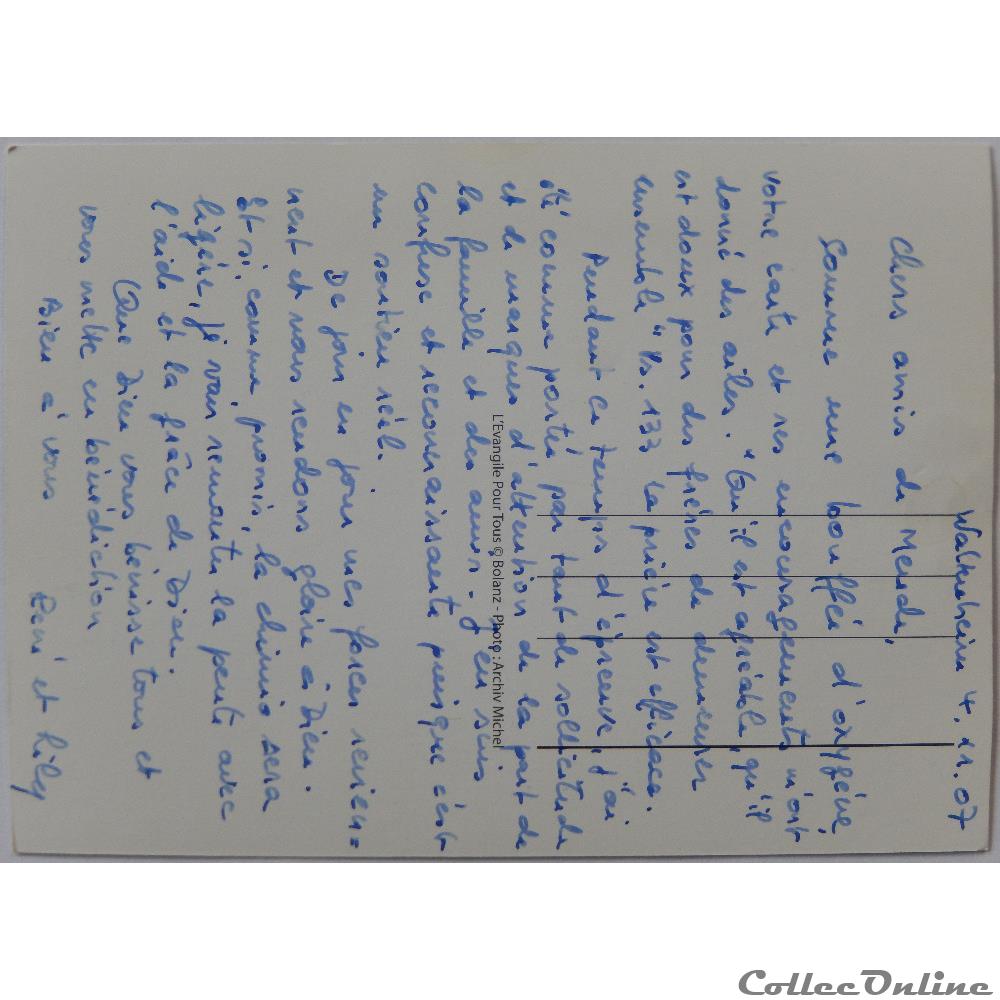 Waltenheim 4.11.07
Chers amis de Mende,
Comme une bouffée d'oxygène,
votre carte et ses encouragements m'ont
donné des ailes. "Qu'il est agréable, qu'il
est doux pour des frères de demeurer
ensemble" Ps. 133 La prière est efficace.
Pendant ce temps d'épreuve, j'ai
été comme portée par tant de sollicitude
et de marques d'attention de la part de
la famille et des amis - j'en suis
confuse et reconnaissante puisque c'est
un soutien réel.
De jour en jour mes forces revien=
nent et nous rendons gloire à Dieu.
Et si, comme promis, la chimio sera
légère, je vais remonter la pente avec
l'aide et la grâce de Dieu.
Que Dieu vous bénisse tous et
vous mette en bénédiction
Bien à vous
René et Lily
L'Evangile Pour Tous © Bolanz - Photo : Archiv Michel
CollecOnline